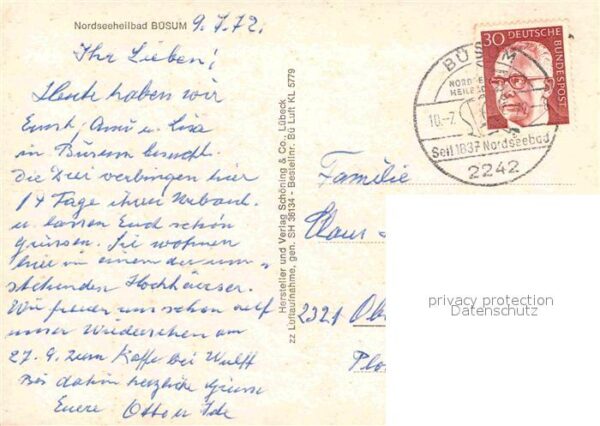 Nordseeheilbad BÜSUM 9.7.72.
Ihr Lieben!
Heute haben wir
Ernst, Anni u. Lisa
in Büsum besucht.
Die Drei verbringen hier
14 Tage ihren Urlaub
u. lassen Euch schön
grüssen. Sie wohnen
hier in einem der um-
stehenden Hochhäuser.
Wir freuen uns schon auf
unser Wiedersehen am
27.9. zum Kaffe bei Wulff
Bis dahin herzliche Grüsse
Euere Otto u Ida
Hersteller und Verlag Schöning & Co., Lübeck
zz Luftaufnahme, gen. SH 36134 - Bestellnr. Bü Luft KL 5779
30 DEUTSCHE BUNDESPOST
BÜSUM
10.-7.
Seit 1837 Nordseebad
2242
Familie
Claus
2321
privacy protection
Datenschutz